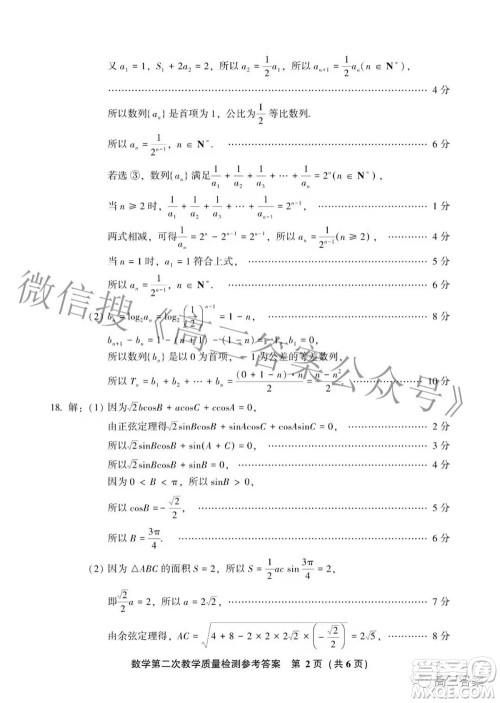 又 a₁ = 1，S₁ + 2a₂ = 2，所以 a₂ = 1/2 a₁，所以 aₙ₊₁ = 1/2 aₙ(n ∈ N*)，
…… 4 分
所以数列{aₙ}是首项为 1，公比为 1/2 等比数列.
所以 aₙ = 1/2ⁿ⁻¹，n ∈ N*. …… 6 分
若选 ③，数列{aₙ}满足 1/a₁ + 1/a₂ + 1/a₃ + ⋯ + 1/aₙ = 2ⁿ(n ∈ N*)，
当 n ≥ 2 时，1/a₁ + 1/a₂ + ⋯ + 1/aₙ₋₁ = 2ⁿ⁻¹， …… 1 分
两式相减，可得 1/aₙ = 2ⁿ - 2ⁿ⁻¹ = 2ⁿ⁻¹(n ≥ 2)， …… 4 分
当 n = 1 时，a₁ = 1 符合上式， …… 5 分
所以 aₙ = 1/2ⁿ⁻¹，n ∈ N*. …… 6 分
（2）bₙ = log₂aₙ = log₂(1/2)ⁿ⁻¹ = 1 - n，
bₙ₊₁ - bₙ = 1 - (n+1) - (1 - n) = -1，
所以数列{bₙ}是首项为 0，-1 为公差的等差数列，
所以 Tₙ = b₁ + b₂ + ⋯ + bₙ = (0 + 1 - n)·n/2 = (n - n²)/2 …… 10 分
18. 解：（1）因为√2bcosB + acosC + ccosA = 0，
由正弦定理得√2sinBcosB + sinAcosC + cosAsinC = 0， …… 2 分
所以√2sinBcosB + sin(A + C) = 0， …… 3 分
所以√2sinBcosB + sinB = 0， …… 4 分
因为 0 < B < π，所以 sinB > 0，
所以 cosB = -√2/2， …… 5 分
所以 B = 3π/4. …… 6 分
（2）因为 △ABC 的面积 S = 2，所以 S = 1/2 ac sin 3π/4 = 2，
即 √2/2 a = 2，a = 2√2， …… 7 分
由余弦定理得，AC = √(4 + 8 - 2 × 2 × 2√2 × (-√2/2)) = 2√5， …… 8 分
数学第二次教学质量检测参考答案 第 2 页（共 6 页）
微信搜《高三答案公众号》
高三答案